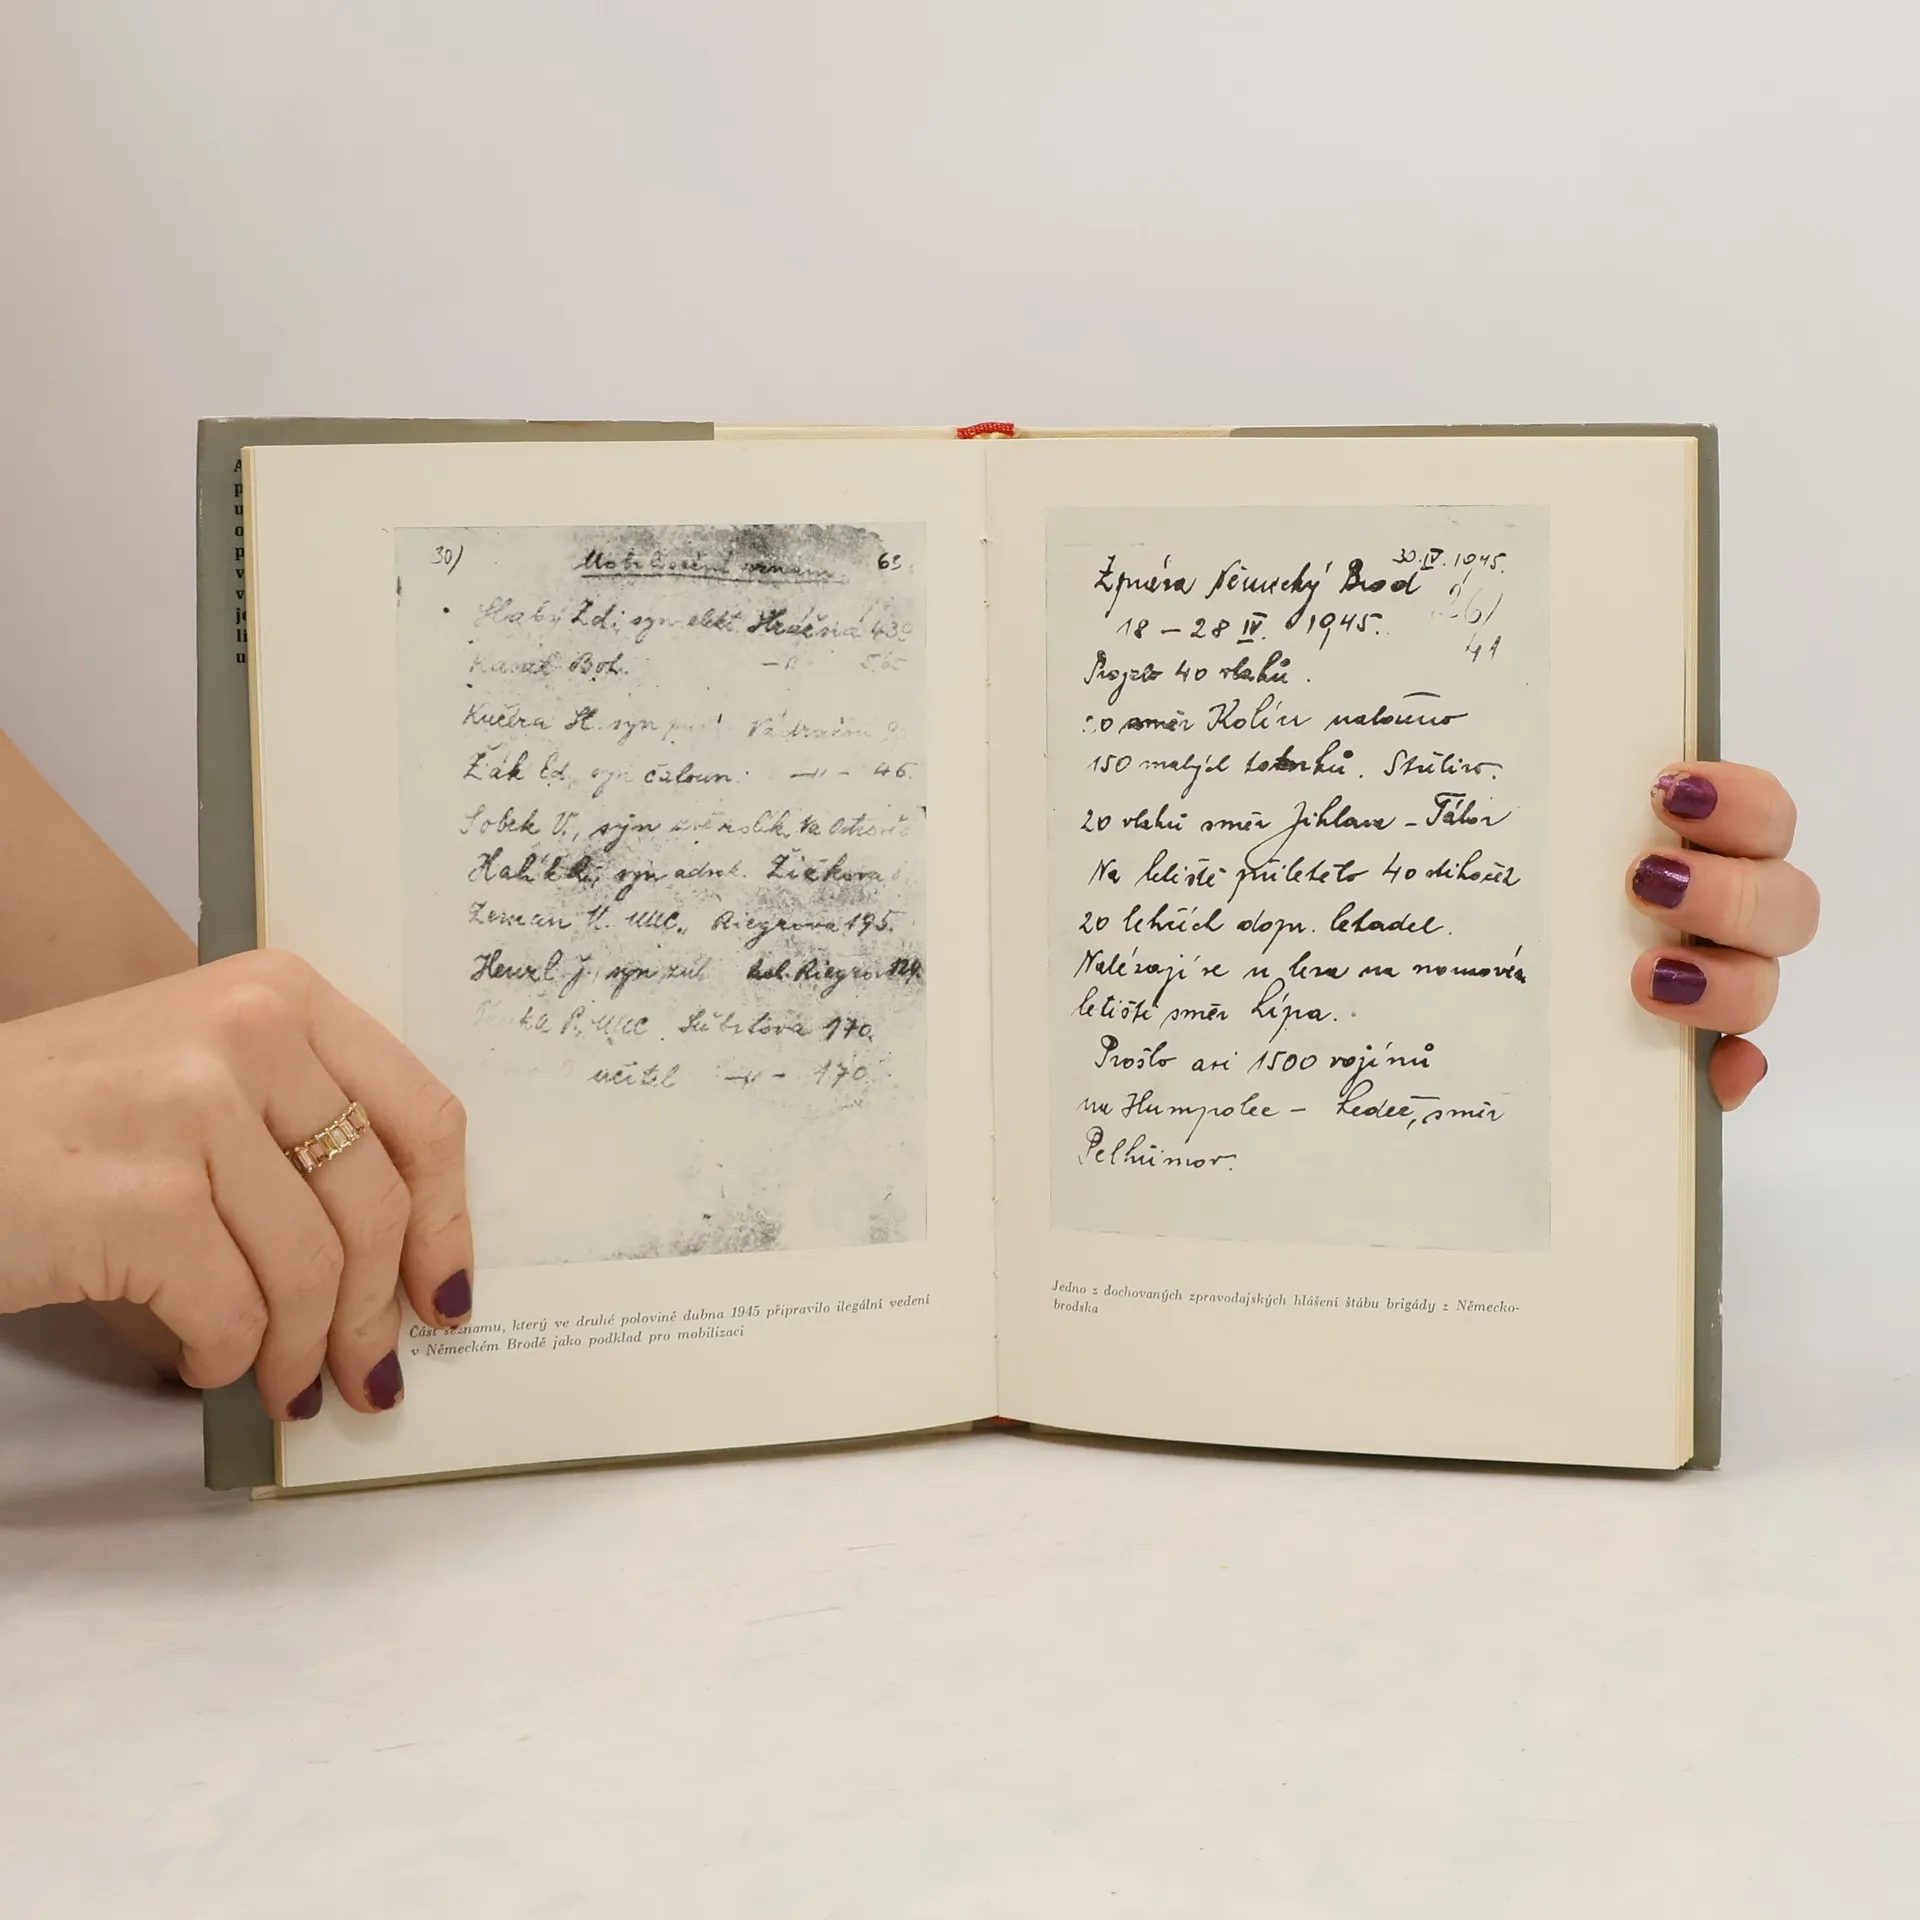 30)
63
Mobilisační seznam
Slabý Zd. syn elekt Hrázná 430
Boh.
Kučera St. syn Nádražní
Žák Ed. syn čaloun. —"— 46.
Sobek V., syn zvěrolék. Na Ostrově
syn advok. Žižkova
Zeman V. Riegrova 195.
Henzl J. syn Riegrova 124.
P. Subrtova 170.
učitel —"— 170.
Část seznamu, který ve druhé polovině dubna 1945 připravilo ilegální vedení
v Německém Brodě jako podklad pro mobilizaci
30.IV. 1945.
Zpráva Německý Brod
26/
18 – 28 IV. 1945.
41
Projelo 40 vlaků.
směr Kolín naloženo
150 malých tančíků. Střelivo.
20 vlaků směr Jihlava – Tábor
Na letiště přiletělo 40 stíhaček
20 lehčích dopr. letadel.
Nalézají se u lesa na nouzovém
letišti směr Lípa.
Prošlo asi 1500 vojínů
na Humpolec – Ledeč, směr
Pelhřimov.
Jedno z dochovaných zpravodajských hlášení štábu brigády z Německo-
brodska